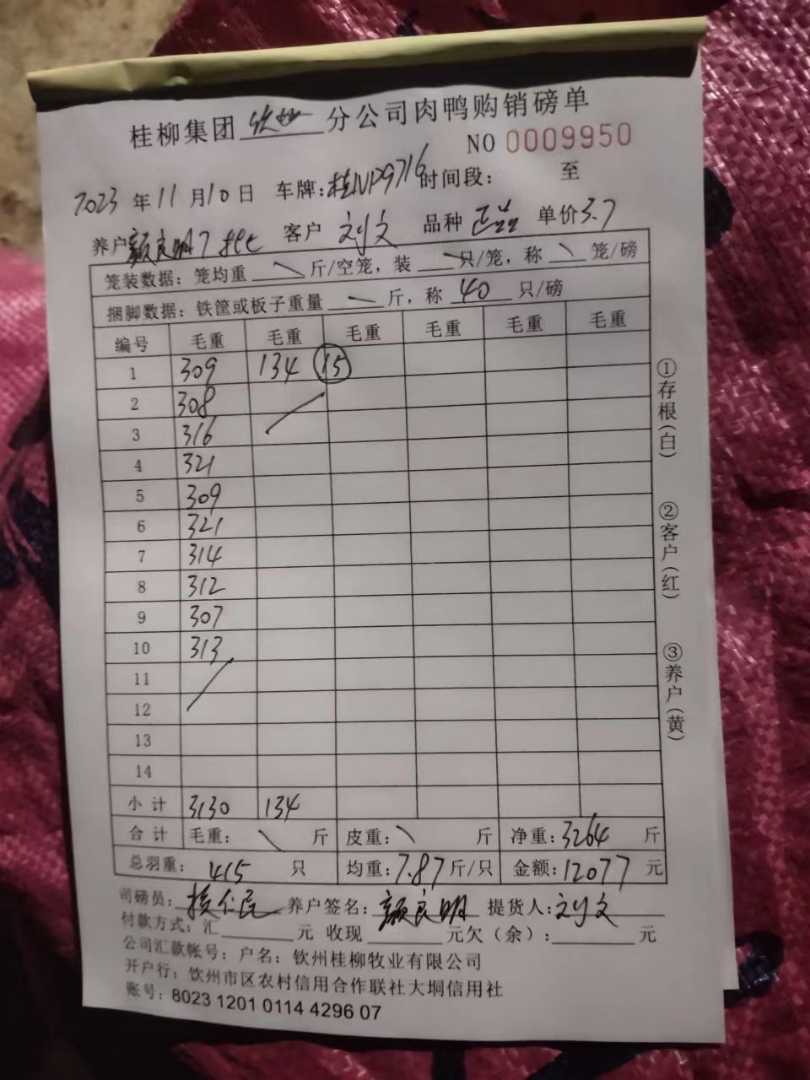 桂柳集团 钦州 分公司肉鸭购销磅单
NO 0009950
2023 年 11 月 10 日 车牌:桂NP9716 时间段: 至
养户 颜良明7 客户 刘文 品种 单价 3.7
笼装数据: 笼均重 \ 斤/空笼, 装 \ 只/笼, 称 \ 笼/磅
捆脚数据: 铁筐或板子重量 \ 斤, 称 40 只/磅
编号 毛重 毛重 毛重 毛重 毛重 毛重
1 309 134 15
2 308
3 316
4 321
5 309
6 321
7 314
8 312
9 307
10 313
11
12
13
14
小计 3130 134
合计 毛重: \ 斤 皮重: \ 斤 净重: 3264 斤
总羽重: 415 只 均重: 7.87 斤/只 金额: 12077 元
司磅员: 养户签名: 颜良明 提货人: 刘文
付款方式: 汇 元 收现 元欠(余): 元
公司汇款帐号: 户名: 钦州桂柳牧业有限公司
开户行: 钦州市区农村信用合作联社大垌信用社
账号: 8023 1201 0114 4296 07
①存根(白) ②客户(红) ③养户(黄)